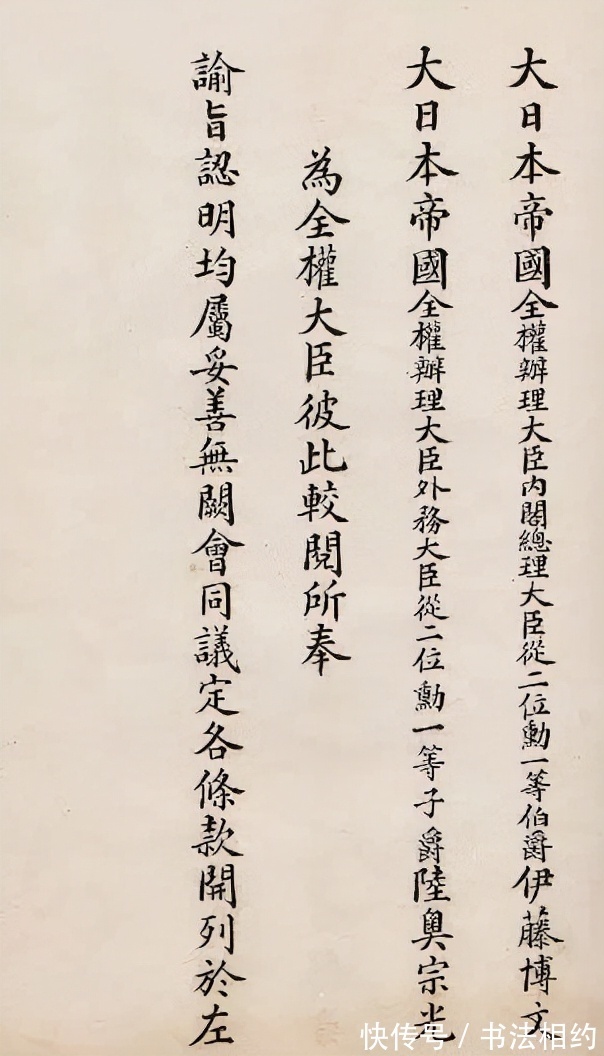 大日本帝國全權辦理大臣內閣總理大臣從二位勳一等伯爵伊藤博文
大日本帝國全權辦理大臣外務大臣從二位勳一等子爵陸奧宗光
為全權大臣彼此較閱所奉
諭旨認明均屬妥善無闕會同議定各條款開列於左
快传号 / 书法相约